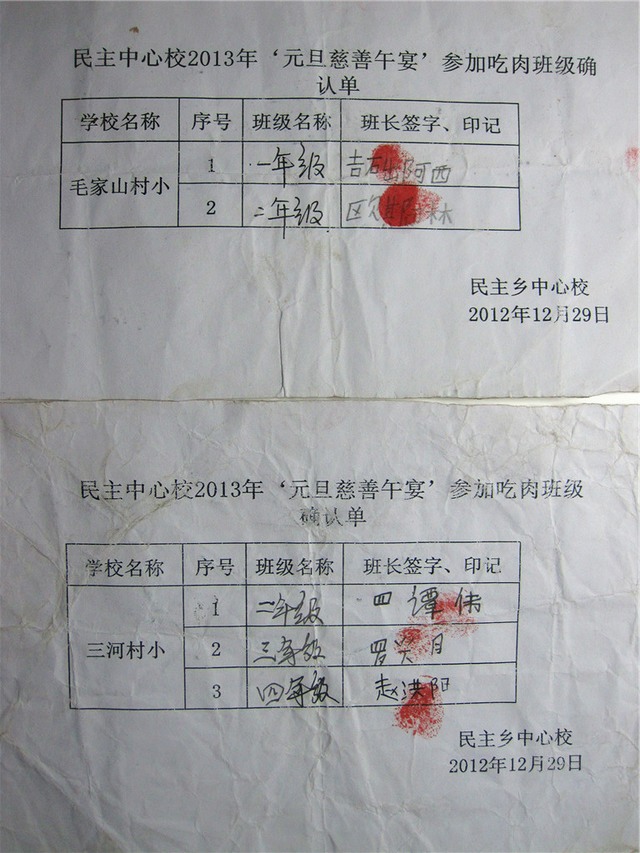 民主中心校2013年‘元旦慈善午宴’参加吃肉班级确
认单
学校名称 序号 班级名称 班长签字、印记
毛家山村小 1 一年级 吉石 阿西
2 二年级
民主乡中心校
2012年12月29日
民主中心校2013年‘元旦慈善午宴’参加吃肉班级
确认单
学校名称 序号 班级名称 班长签字、印记
三河村小 1 二年级 四 谭伟
2 三年级 罗 月
3 四年级 赵洪阳
民主乡中心校
2012年12月29日